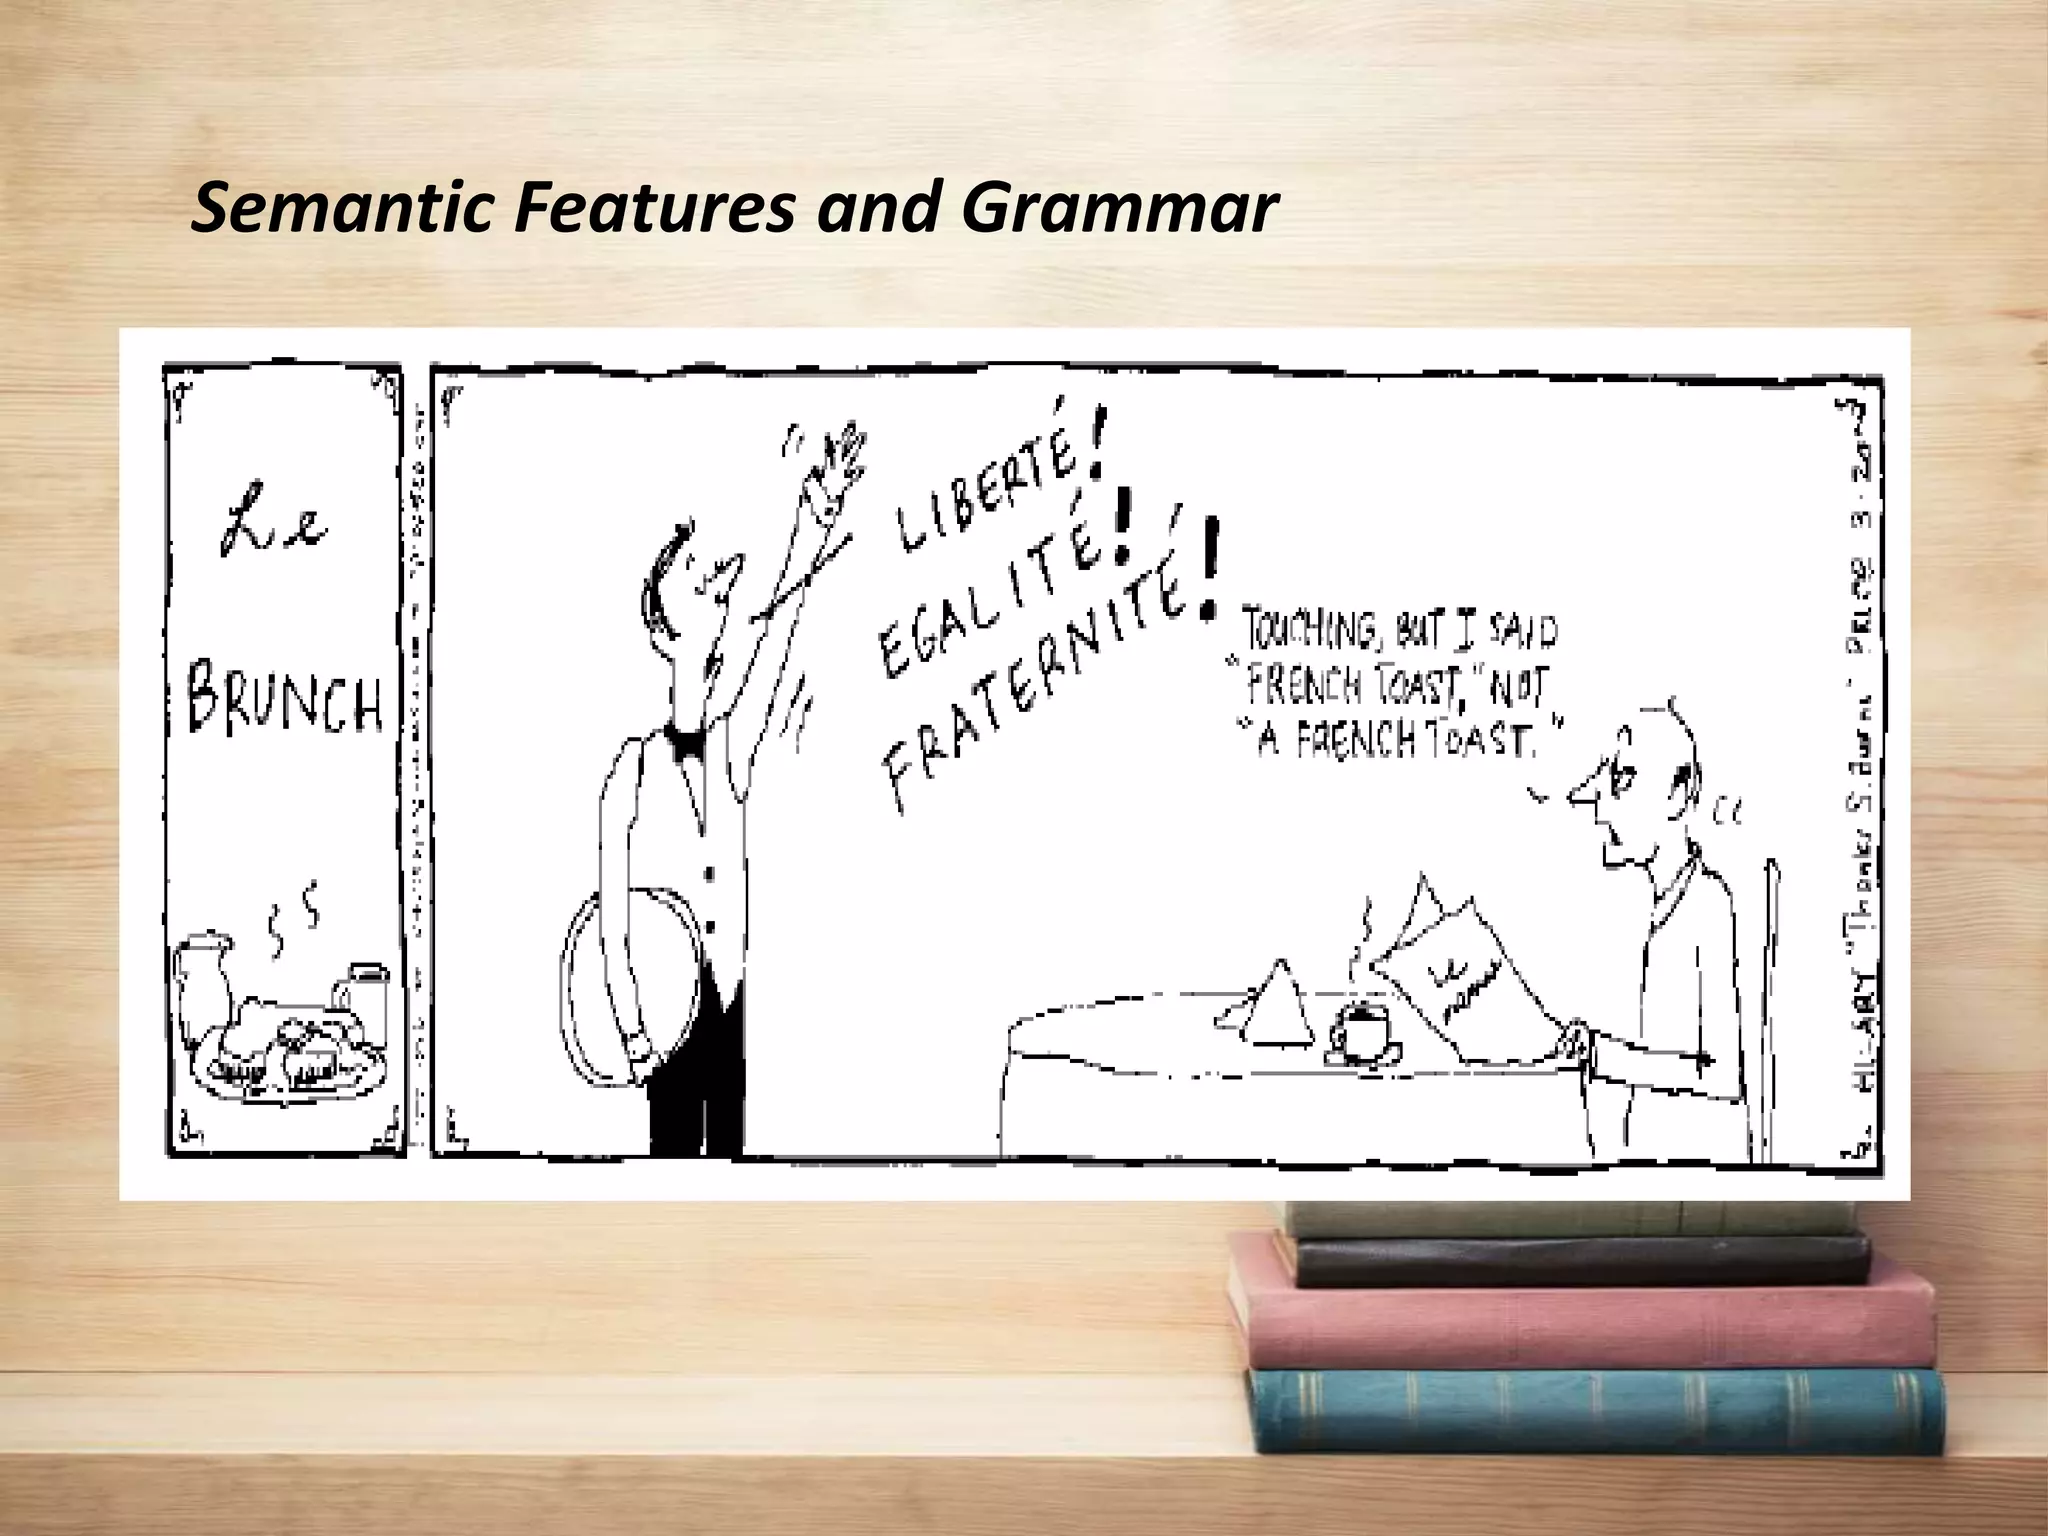 Semantic Features and Grammar
Le
BRUNCH
LIBERTÉ!
EGALITÉ!
FRATERNITÉ!
TOUCHING, BUT I SAID
"FRENCH TOAST," NOT
"A FRENCH TOAST."
Le
menu
HILARY